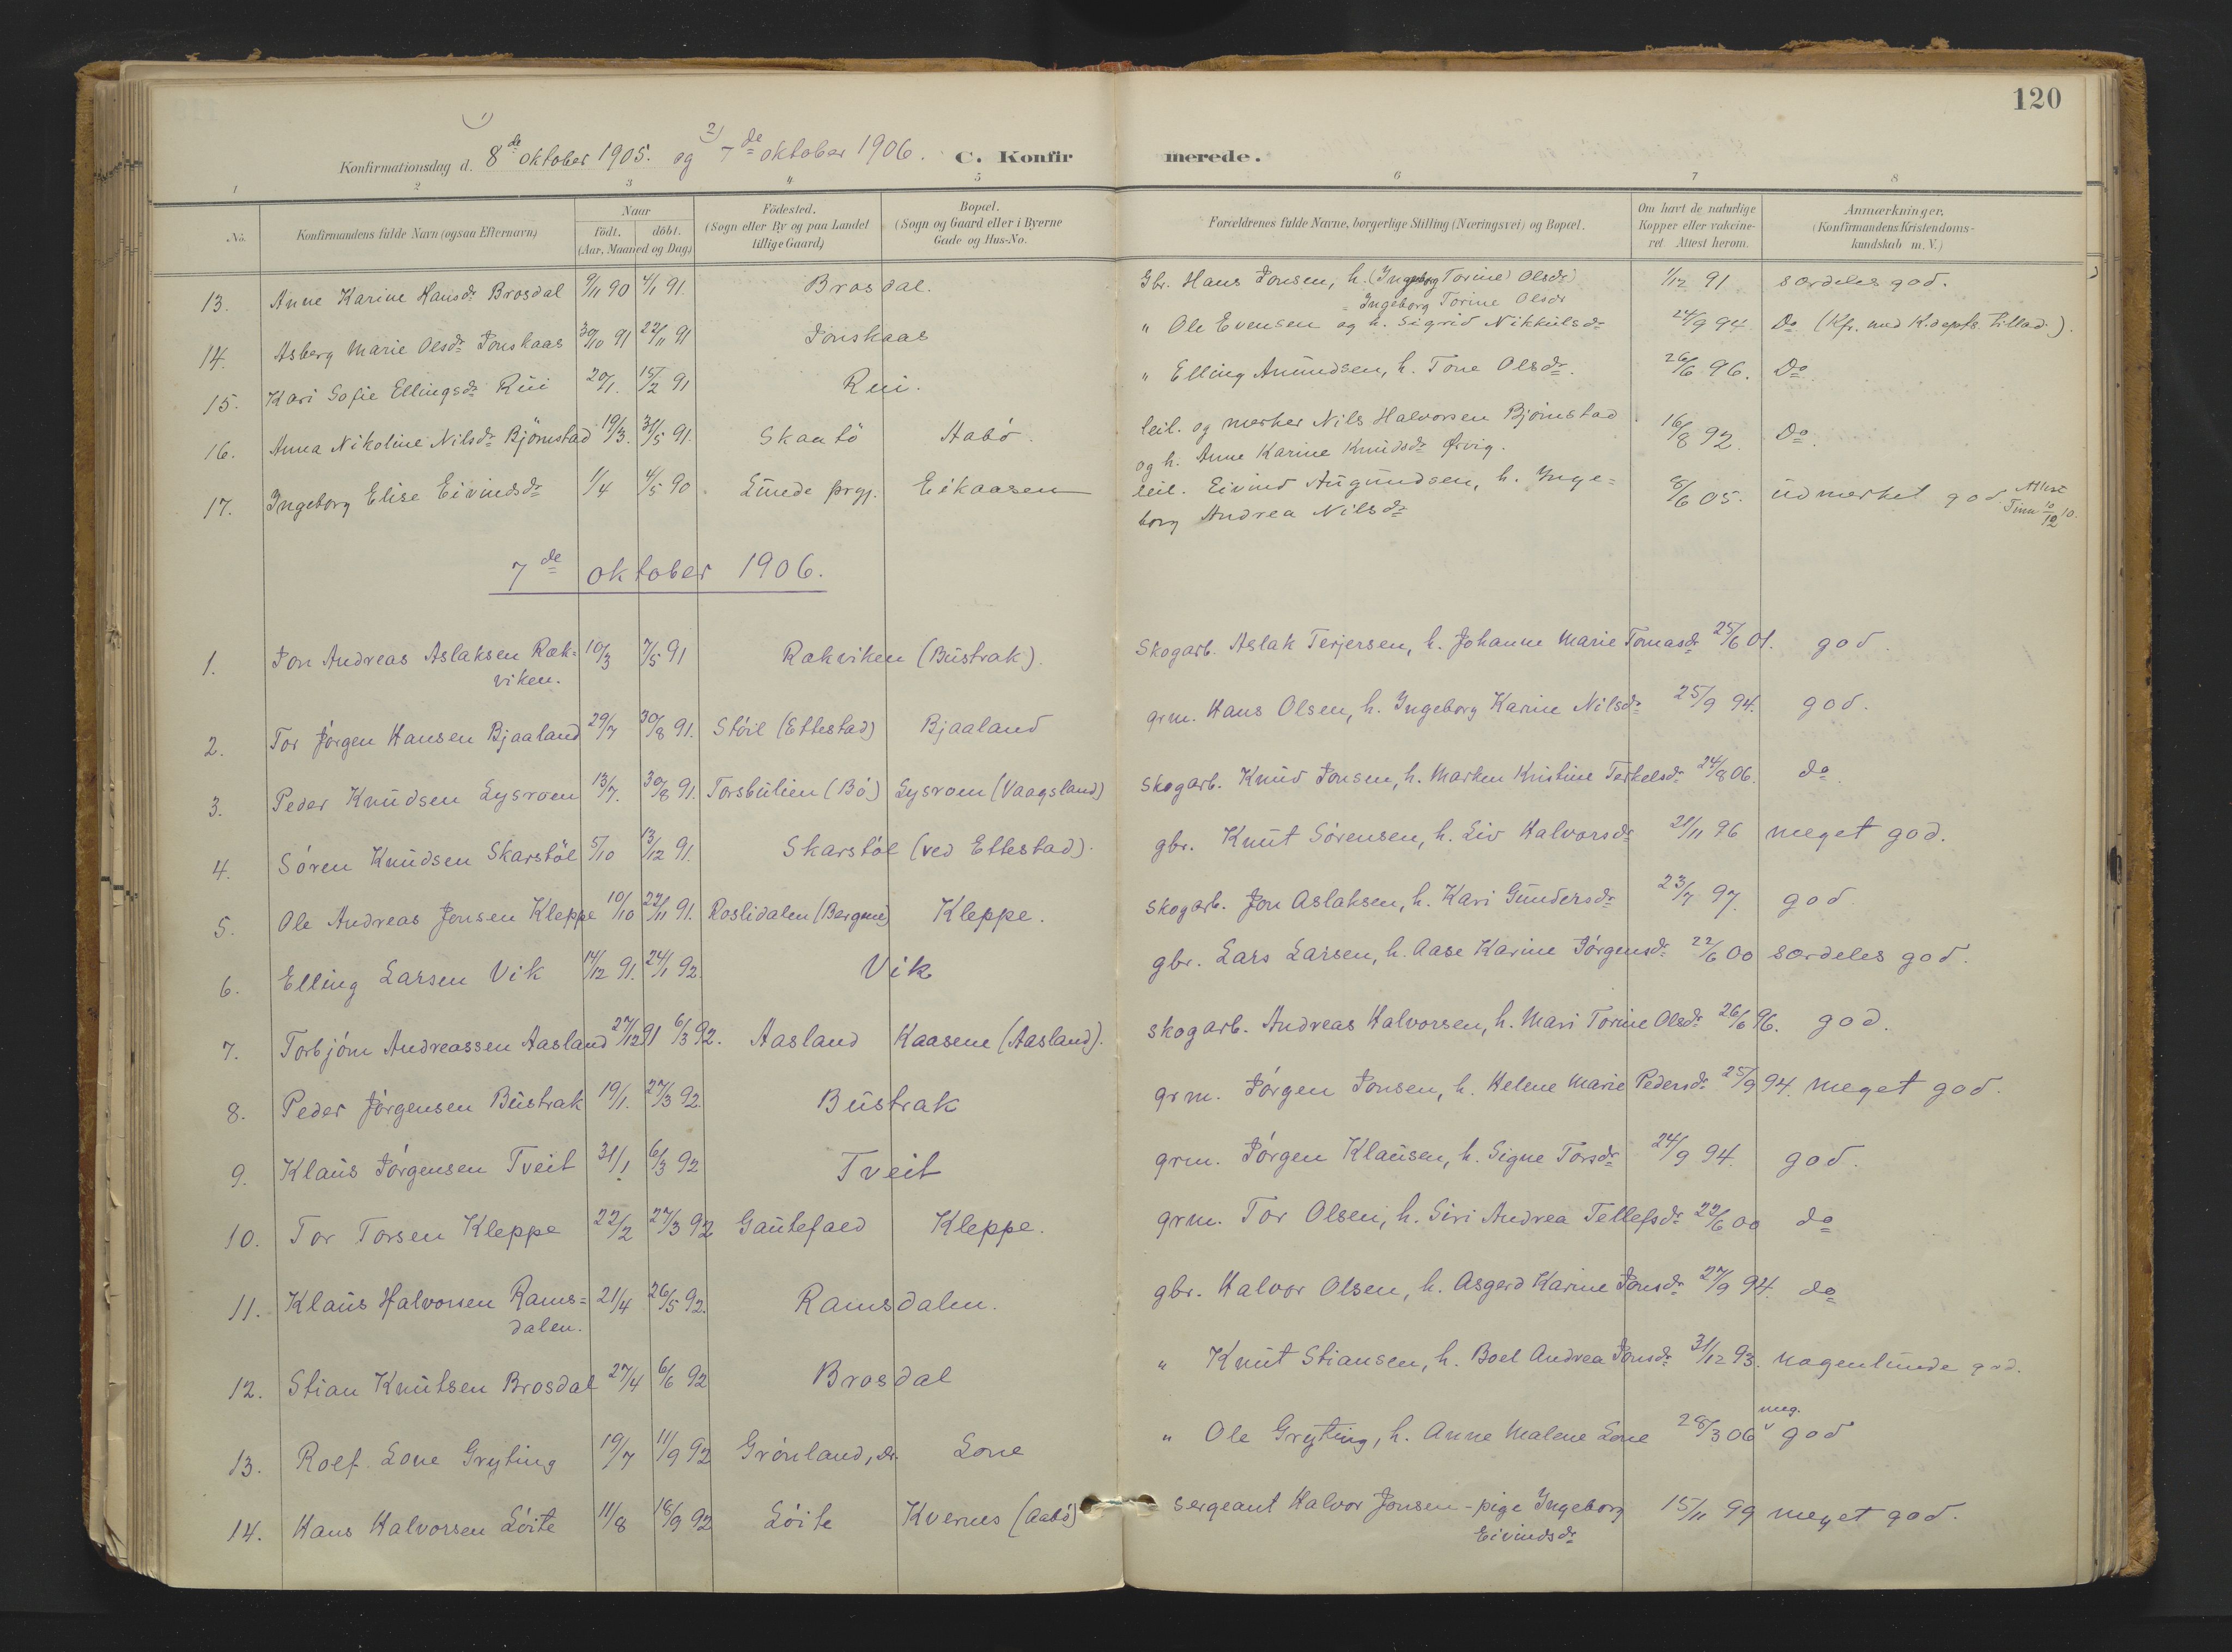 120
1) 2)
Konfirmationsdag d. 8de oktober 1905. og 7de oktober 1906. C. Konfirmerede.
1 2 3 4 5 6 7 8
No. Konfirmandens fulde Navn (ogsaa Efternavn) Naar födt. döbt. (Aar, Maaned og Dag) Födested. (Sogn eller By og paa Landet tillige Gaard) Bopæl. (Sogn og Gaard eller i Byerne Gade og Hus-No. Forældrenes fulde Navne, borgerlige Stilling (Næringsvei) og Bopæl. Om havt de naturlige Kopper eller vakcineret. Attest herom. Anmærkninger, (Konfirmandens Kristendomskundskab m. V.)
13. Anne Karine Hansdr Brosdal 9/11 90 4/1 91. Brosdal. Gbr. Hans Jonsen, h. (Ingeborg Torine) Olsdr) 1/12 91 særdeles god.
Ingeborg Torine Olsdr
14. Asberg Marie Olsdr Jonskaas 30/10 91 22/11 91 Jonskaas " Ole Evensen og h. Sigrid Nikkulsdr 24/9 94. Do (Kfr. med K.depts tillad.).
15. Kari Sofie Ellingsdr Rui 20/1. 15/2 91 Rui. " Elling Amundsen, h. Tone Olsdr. 26/6 96. Do.
16. Anna Nikoline Nilsdr Björnstad 19/3. 31/5 91. Skaatö Aabö. leil. og Nils Halvorsen Björnstad
og h. Anne Karine Knudsdr Ørvig. 16/8 92. Do.
17. Ingeborg Elise Eivindsdr 1/4 4/5 90. Lunde prgj. Eikaasen leil. Eivind Augundsen, h. Inge=
borg Andrea Nilsdr 8/6 05. udmerket god Attest
Tinn 10/12 10.
7de oktober 1906.
1. Jon Andreas Aslaksen Ræk= 10/3 7/5 91 Rækviken (Bustrak). Skogarb. Aslak Terjersen, h. Johanne Marie Tomasdr 25/6 01. god.
viken.
2. Tor Jörgen Hansen Bjaaland 29/7 30/8 91. Stöil (Ettestad) Bjaaland grm. Hans Olsen, h. Ingeborg Karine Nilsdr 25/9 94. god.
3. Peder Knudsen Lysroen 13/7. 30/8 91. Torsbulien (Bö) Lysroen (Vaagsland) Skogarb. Knud Jonsen, h. Marken Kristine Terkelsdr 24/8 06. do.
4. Sören Knudsen Skarstöl 5/10 13/12 91. Skarstöl (ved Ettestad). gbr. Knut Sörensen, h. Liv Halvorsdr 21/11 96 meget god.
5. Ole Andreas Jonsen Kleppe 10/10 22/11 91. Roslidalen (Bergene) Kleppe. skogarb. Jon Aslaksen, h. Kari Gundersdr 23/7 97. god
6. Elling Larsen Vik 14/12 91. 24/1 92. Vik gbr. Lars Larsen, h. Aase Karine Jörgensdr 22/6 00 særdeles god.
7. Torbjörn Andreassen Aasland 27/12 91 6/3 92. Aasland Kaasene (Aasland). skogarb. Andreas Halvorsen, h. Mari Torine Olsdr 26/6 96. god.
8. Peder Jörgensen Bustrak 19/1. 27/3 92. Bustrak grm. Jörgen Jonsen, h. Helene Marie Pedersdr 25/9 94. meget god.
9. Klaus Jörgensen Tveit 31/1 6/3 92 Tveit grm. Jörgen Klausen, h. Signe Torsdr 24/9 94. god.
10. Tor Torsen Kleppe 22/2 27/3 92 Gautefaed Kleppe. grm. Tor Olsen, h. Siri Andrea Tellefsdr 22/6 00 do
11. Klaus Halvorsen Rams= 21/4 26/5 92. Ramsdalen. gbr. Halvor Olsen, h. Asgerd Karine Jonsdr 27/9 94. do
dalen.
12. Stian Knutsen Brosdal 27/4 6/6 92 Brosdal " Knut Stiansen, h. Boel Andrea Jonsdr 31/12 93. nogenlunde god.
13. Rolf Lone Gryting 19/7 11/9 92 Grönland, Dr. Lone " Ole Gryting, h. Anne Malene Lone 28/3 06 meg. god
14. Hans Halvorsen Löite 11/8 18/9 92 Löite Kvernes (Aabö) sergeant Halvor Jonsen - pige Ingeborg 15/11 99 meget god.
Eivindsdr